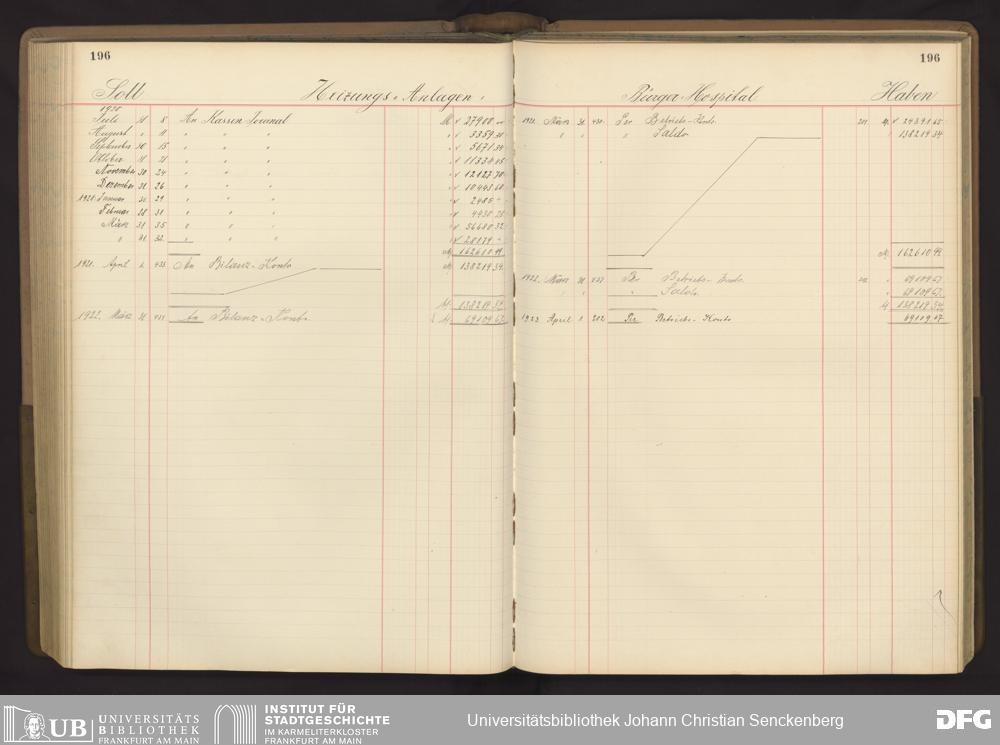 196
Soll Heizungs-Anlagen
1920
Juli 31 5 An Kassen Journal M 27900
August " 11 " " " 5359
September 30 15 " " " 5671.94
Oktober 31 21 " " " 11334.45
November 30 24 " " " 12127.70
Dezember 31 26 " " " 10443.60
1921 Januar 31 29 " " " 2485.-
Februar 28 31 " " "
März 31 35 " " " 56680.32
" 31 32 " " "
M 162610.99
1921. April 1. 433 An Bilanz-Konto M 138219.34
M 138219.34
1922. März 31. An Bilanz-Konto M 69109.67
196
Bürger Hospital Haben
1921. März 31. 430. Per Betriebs-Konto 201. M 24391.65
" " " Saldo 138219.34
M 162610.99
1922. März 31. Per Betriebs-Konto 69109.67
" " " Saldo 69109.67
M 138219.34
1923 April 1. 202. Per Betriebs-Konto 69109.67
UB UNIVERSITÄTS
BIBLIOTHEK
FRANKFURT AM MAIN
INSTITUT FÜR
STADTGESCHICHTE
IM KARMELITERKLOSTER
FRANKFURT AM MAIN
Universitätsbibliothek Johann Christian Senckenberg
DFG